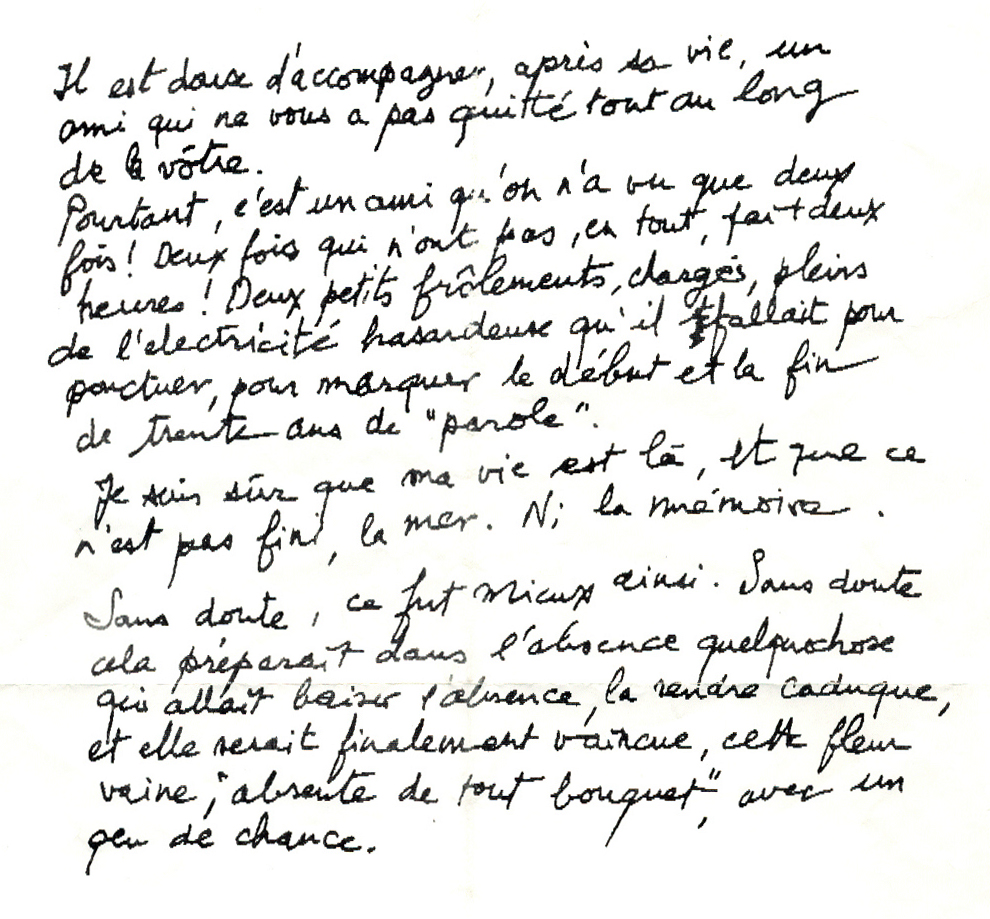 Il est doux d'accompagner, après sa vie, un
ami qui ne vous a pas quitté tout au long
de la vôtre.
Pourtant, c'est un ami qu'on n'a vu que deux
fois! Deux fois qui n'ont pas, en tout, fait deux
heures! Deux petits frôlements, chargés, pleins
de l'electricité hasardeuse qu'il fallait pour
ponctuer, pour marquer le début et la fin
de trente ans de "parole".
Je suis sûr que ma vie est là, et que ce
n'est pas fini, la mer. Ni la mémoire.
Sans doute, ce fut mieux ainsi. Sans doute
cela préparait dans l'absence quelquochose
qui allait baiser l'absence, la rendre caduque,
et elle serait finalement vaincue, cette fleur
vaine, "absente de tout bouquet", avec un
peu de chance.